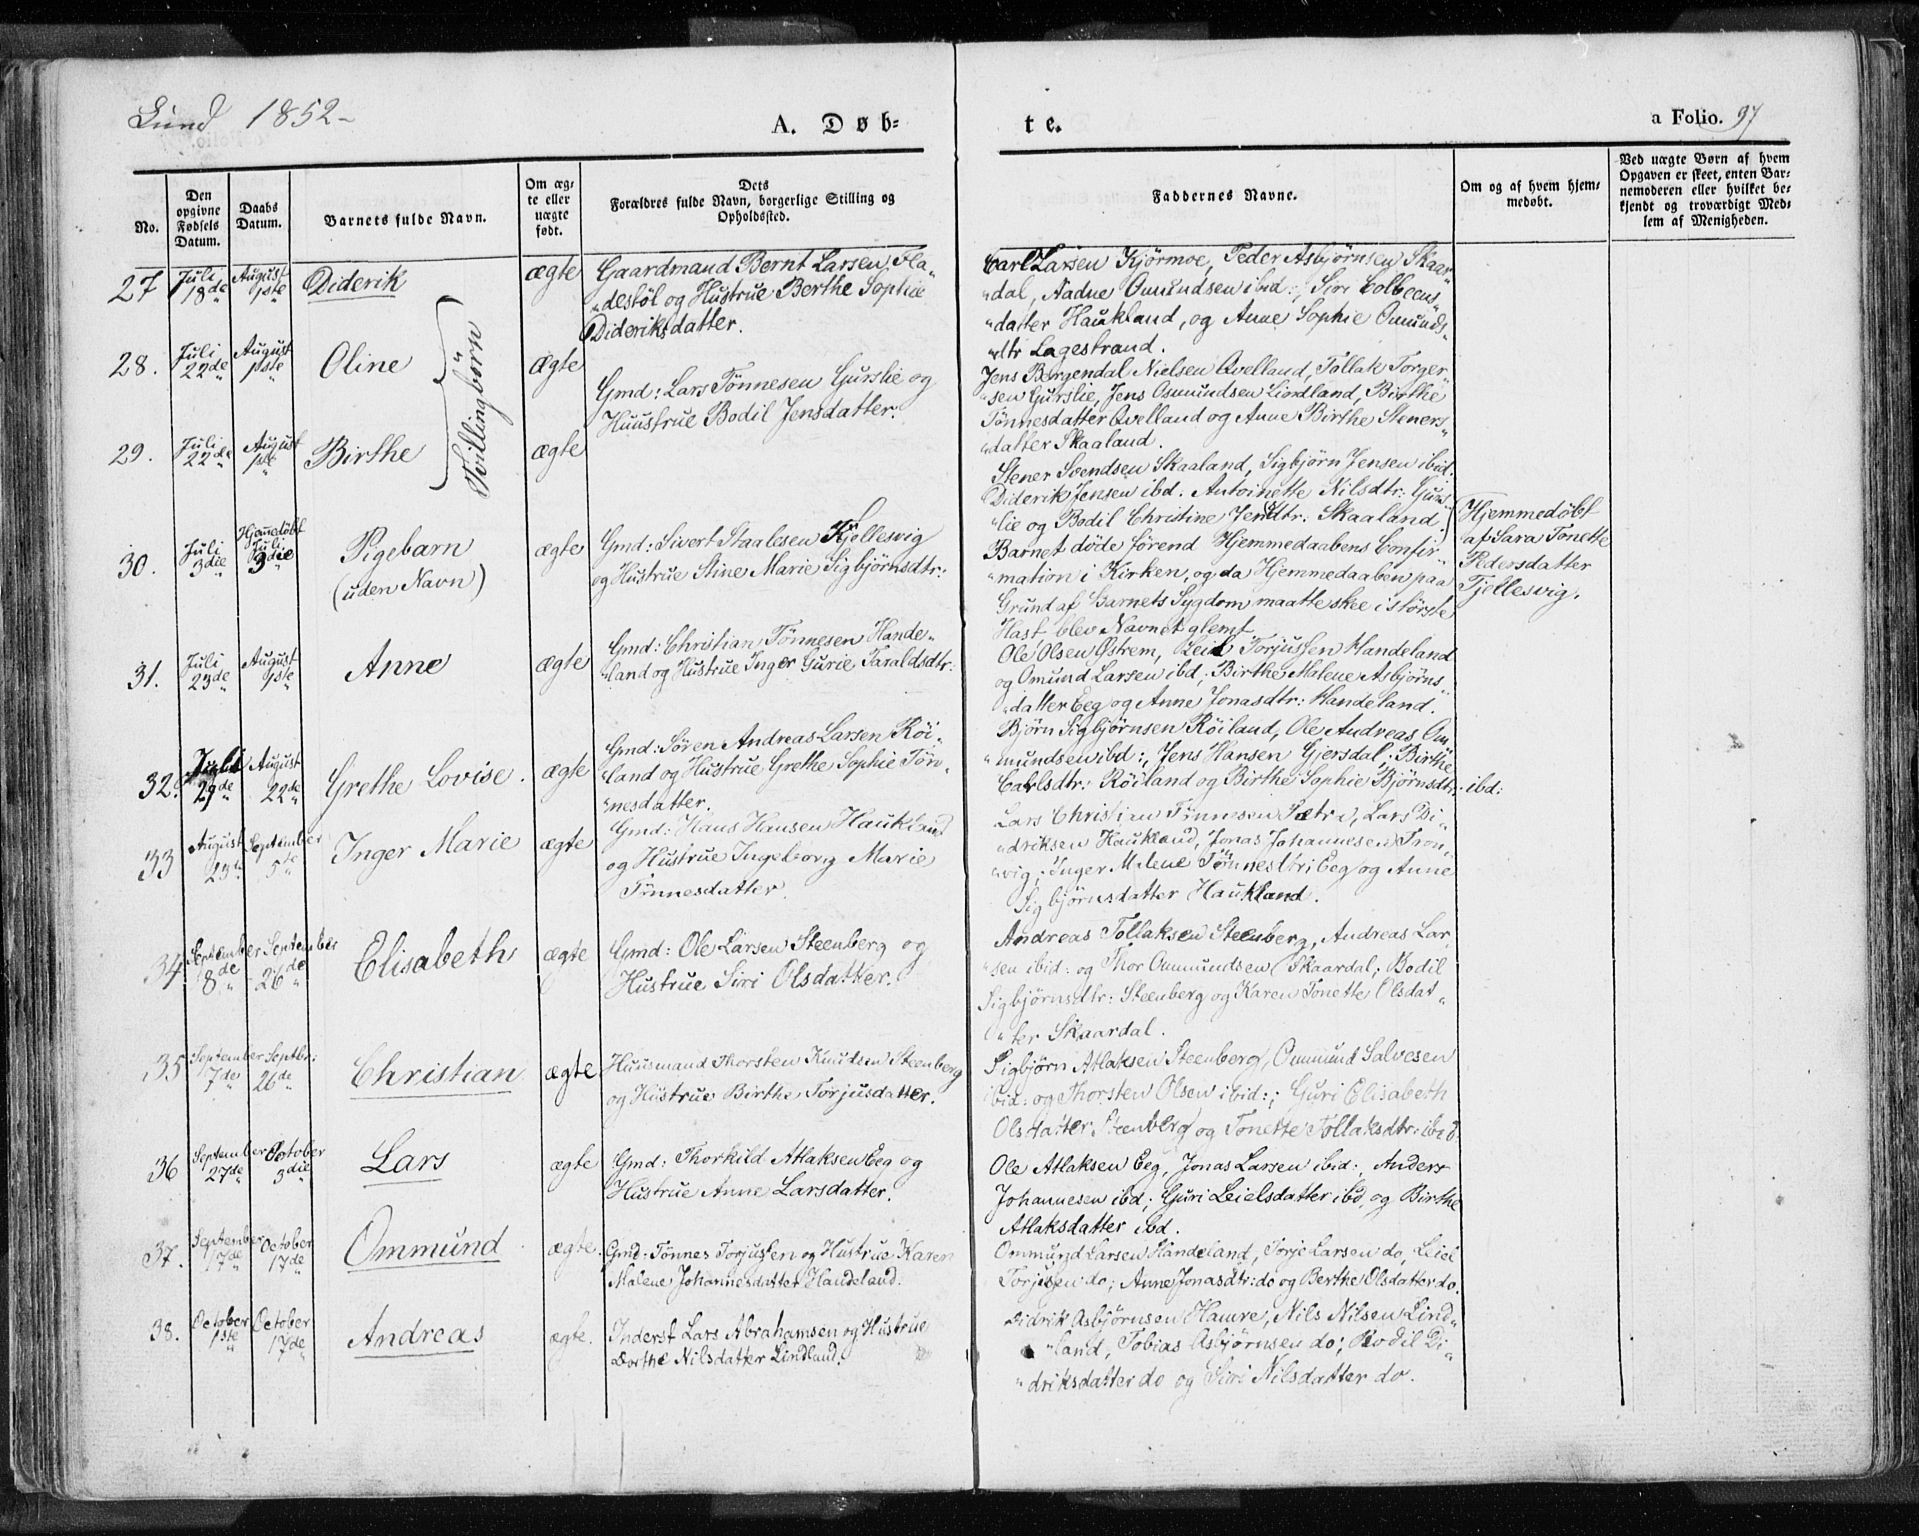 Lund 1852-
A. Døb- te.
a Folio. 97
No.
Den opgivne Fødsels Datum.
Daabs Datum.
Barnets fulde Navn.
Om ægte eller uægte født.
Dets Forældres fulde Navn, borgerlige Stilling og Opholdssted.
Faddernes Navne.
Om og af hvem hjemmedøbt.
Ved uægte Børn af hvem Opgaven er skeet, enten Barnemoderen eller hvilket bekjendt og troværdigt Medlem af Menigheden.
27 Juli 18de August 1ste Diderik ægte
Gaardmand Bernt Larsen Fla„
„destöl og Hustrue Berthe Sophie
Dideriksdatter.
Carl Larsen Kjörmoe, Peder Asbjörnsen Skaar„
„dal, Aadne Omundsen ibid:, Siri
„datter Haukland, og Anne Sophie Omunds„
„dtr Lagestrand.
28. Juli 22de „ August 1ste „ Oline ægte
Tvillingbörn
Gmd: Lars Tönnesen Gurslie og
Huustrue Bodil Jensdatter.
Jens Bergendal Nielsen Qvelland, Tollak Torger„
„sen Gurslie, Jens Osmundsen Liordland, Birthe
Tönnesdatter Qvelland og Anne Birthe Steners„
„datter Skaaland.
29. Juli 22de „ August 1ste „ Birthe ægte
Stener Svendsen Skaaland, Sigbjörn Jensen ibid.
Diderik Jensen ibd. Antoinette Nilsdtr: Gurs
„lie og Bodil Christine Jensdtr. Skaaland.
30. Juli 3die Hjemmedöbt Juli 3die Pigebarn
(uden Navn)
ægte
Gmd: Sivert Staalesen Kjellesvig
og Hustrue Stine Marie Sigbjörnsdtr:
Barnet döde förend Hjemmedaabens Confir„
„mation i Kirken, og da Hjemmedaaben paa
Grund af Barnets Sygdom maatte skee i störste
Hast blev Navnet glemt.
Hjemmedöbt
af Sara Tonette
Pedersdatter
Tjellesvig.
31. Juli 23de „ August 1ste „ Anne ægte
Gmd: Christian Tönnesen Hande„
„land og Hustrue Inger Gurie Taraldsdtr:
Ole Olsen Östrem, Leil Torjussen Handeland
og Omund Larsen ibd; Birthe Malene Asbjörns„
„datter Eeg og Anne Jonasdtr: Handeland.
32. Juli 29de „ August 22de „ Grethe Lovise. ægte
Gmd: Sören Andreas Larsen Röi„
„land og Hustrue Grethe Sophie Tön„
„nesdatter.
Björn Sigbjörnsen Röiland, Ole Andreas Om
„mundsen ibd:, Jens Hansen Gjersdal; Birthe
Carlsdtr: Röiland og Birthe Sophie Björnsdtr: ibd:
33 August 23de September 5te Inger Marie ægte
Gmd: Hans Hansen Haukland
og Hustrue Ingeborg Marie
Tönnesdatter.
Lars Christian Tönnesen Sætra, Lars Di„
„driksen Haukland, Jonas Johannesen Tron„
„vig; Inger Malene Tönnesdtr: Eeg og Anne
Sigbjörnsdatter Haukland.
34 September 8de „ September 26de „ Elisabeth ægte
Gmd: Ole Larsen Steenberg og
Hustrue Siri Olsdatter.
Andreas Tollaksen Steenberg, Andreas Lar„
„sen ibid: og Thor Ommundsen Skaardal; Bodil
Sigbjörnsdtr: Steenberg og Karen Tonette Olsdat„
„ter Skaardal.
35 September 7de „ Septbr: 26de „ Christian ægte
Huusmand Thorsten Knudsen Steenberg
og Hustrue Birthe Torjusdatter.
Sigbjörn Atlaksen Steenberg, Ommund Salvesen
ibid: og Thorsten Olsen ibid:; Guri Elisabeth
Olsdatter Steenberg og Tonette Tollaksdtr: ibid.
36 September 27de „ October 3die Lars ægte
Gmd: Thorkild Atlaksen Eeg og
Hustrue Anne Larsdatter.
Ole Atlaksen Eeg, Jonas Larsen ibid:, Anders
Johannesen ibd; Guri Leielsdatter ibd. og Birthe
Atlaksdatter ibd.
37. September 17de „ October 17de „ Ommund ægte.
Gmd: Tönnes Torjussen og Hustrue Karen
Malene Johannesdatter Handeland.
Ommund Larsen Handeland, Torje Larsen do, Leiel
Torjusen do; Anne Jonasdtr: do og Berthe Olsdatter do.
38. October 1ste „ October 17de „ Andreas ægte.
Inderst Lars Abrahamsen og Hustrue
Dorthe Nilsdatter Lindland.
Didrik Asbjörnsen Hamre, Nils Nilsen Lind„
„land, Tobias Asbjörnsen do; Bodil Di„
„driksdatter do og Siri Nilsdatter do.